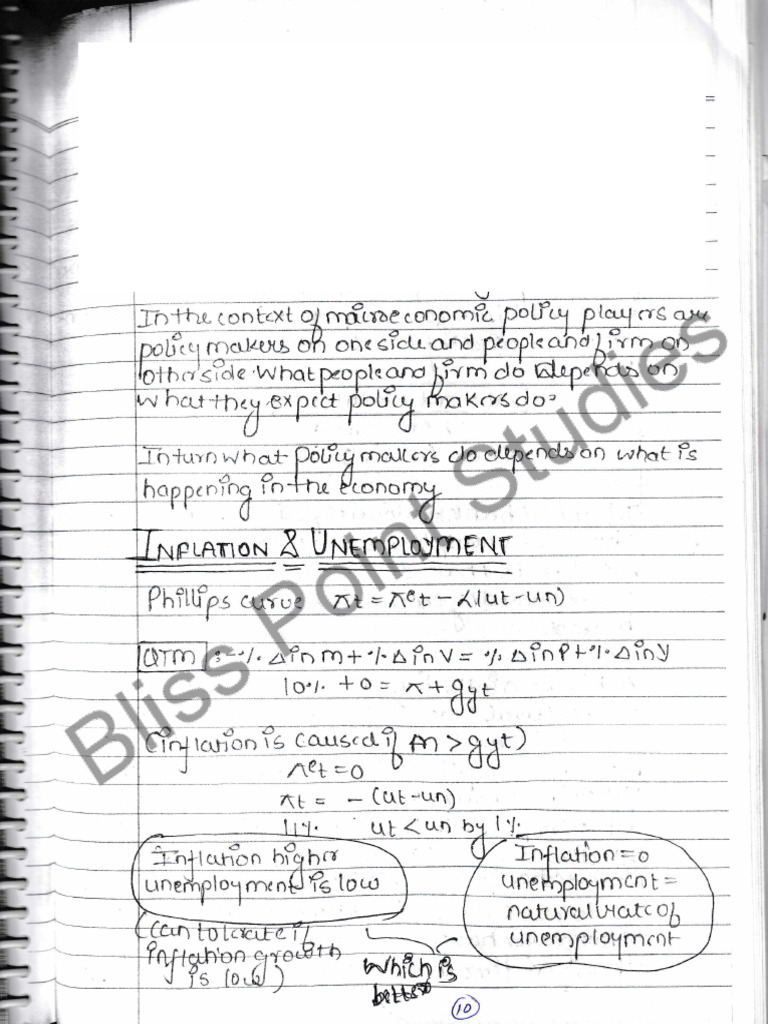 In the context of macroeconomic policy players are
policy makers on one side and people and firm on
other side. What people and firm do depends on
what they expect policy makers do.
In turn what policy makers do depends on what is
happening in the economy
INFLATION & UNEMPLOYMENT
Phillips curve πt = πet - α(ut - un)
QTM :- % Δ in M + % Δ in V = % Δ in P + % Δ in Y
10% + 0 = π + gyt
(inflation is caused if m > gyt)
πet = 0
πt = - (ut - un)
1% ut < un by 1%
Inflation higher
unemployment is low
(can tolerate if
inflation growth
is low)
Inflation = 0
unemployment =
natural rate of
unemployment
which is
better
10
Bliss Point Studies